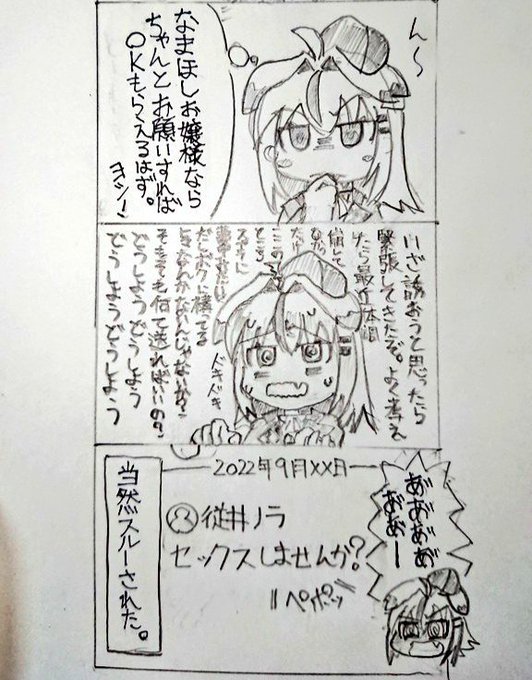 ん〜
なまほしお嬢様なら
ちゃんとお願いすれば
OKもらえるはず。
ヨシ！
いざ誘おうと思ったら
緊張してきたぞ。よく考え
たら最近体調
崩して
なか
ここの
ところ
スタジ
だしボクに構ってる
そもそも何て送ればいいの？
どうしようどうしよう
どうしようどうしよう
ドキドキ
2022年9月××日
従井ノラ
セックスしませんか？
ペポッ
あ゛あ゛あ゛あ゛
あ゛あ゛ー
当然スルーされた。